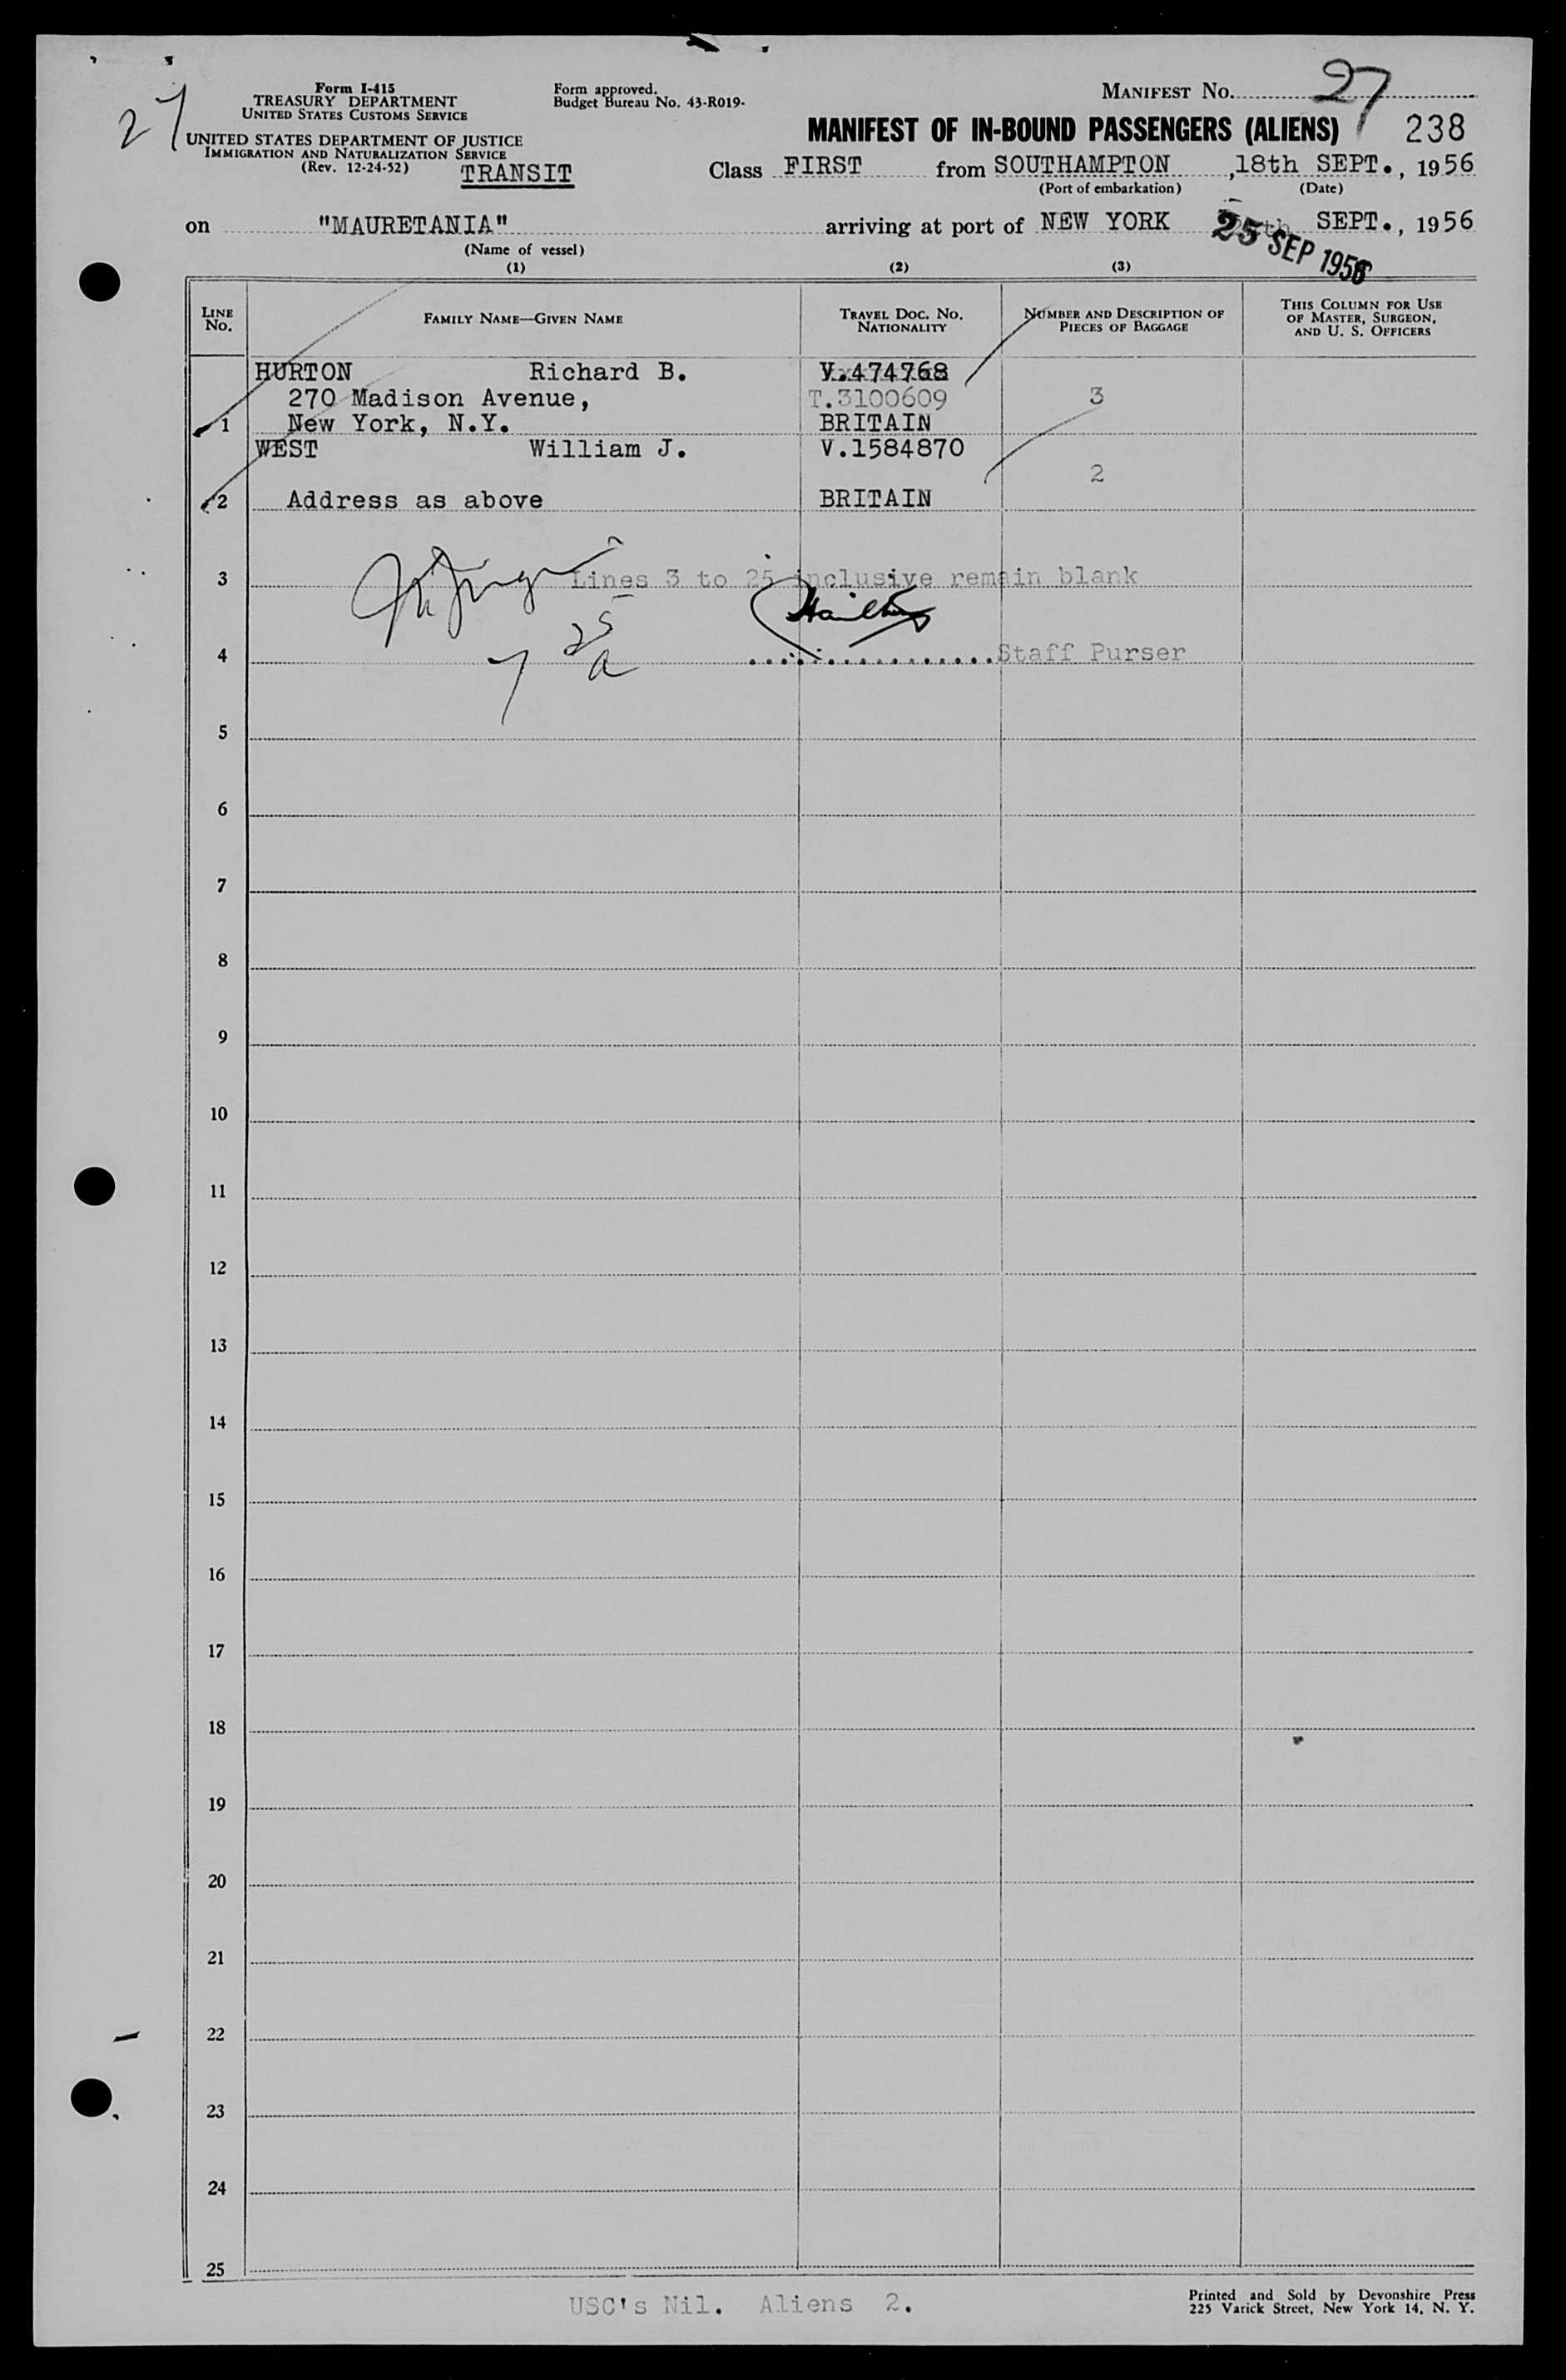 27
Form I-415
TREASURY DEPARTMENT
UNITED STATES CUSTOMS SERVICE
UNITED STATES DEPARTMENT OF JUSTICE
IMMIGRATION AND NATURALIZATION SERVICE
(Rev. 12-24-52)
TRANSIT
Form approved.
Budget Bureau No. 43-R019-
MANIFEST No. 27
MANIFEST OF IN-BOUND PASSENGERS (ALIENS) 238
Class FIRST from SOUTHAMPTON , 18th SEPT., 1956
(Port of embarkation) (Date)
on "MAURETANIA" arriving at port of NEW YORK SEPT., 1956
25 SEP 1956
(Name of vessel)
(1) (2) (3)
LINE No. FAMILY NAME—GIVEN NAME TRAVEL DOC. NO. NATIONALITY NUMBER AND DESCRIPTION OF PIECES OF BAGGAGE THIS COLUMN FOR USE OF MASTER, SURGEON, AND U. S. OFFICERS
HURTON Richard B. V.474768
270 Madison Avenue, T.3100609 3
1 New York, N.Y. BRITAIN
WEST William J. V.1584870
2
2 Address as above BRITAIN
3 Lines 3 to 25 inclusive remain blank
25
4 Staff Purser
5
6
7
8
9
10
11
12
13
14
15
16
17
18
19
20
21
22
23
24
25
USC's Nil. Aliens 2.
Printed and Sold by Devonshire Press
225 Varick Street, New York 14, N. Y.